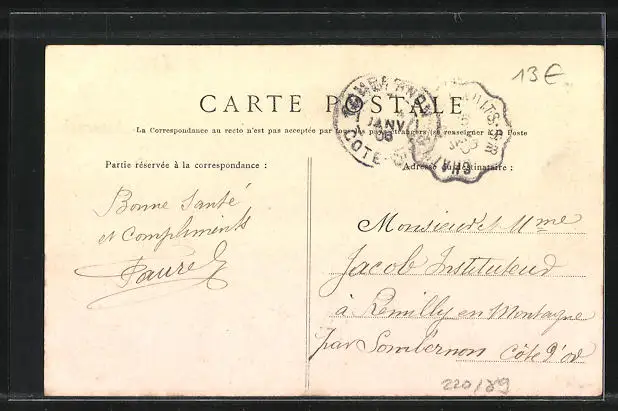 13€
CARTE POSTALE
La Correspondance au recto n'est pas acceptée par tous les pays étrangers (se renseigner à la Poste
JANV
06
COTE-
Partie réservée à la correspondance :
Adresse du destinataire :
Bonne Santé
et Compliments
Faure
Monsieur et Mme
Jacob Instituteur
à Remilly en Montagne
par Sombernon Côte d'Or
220/89